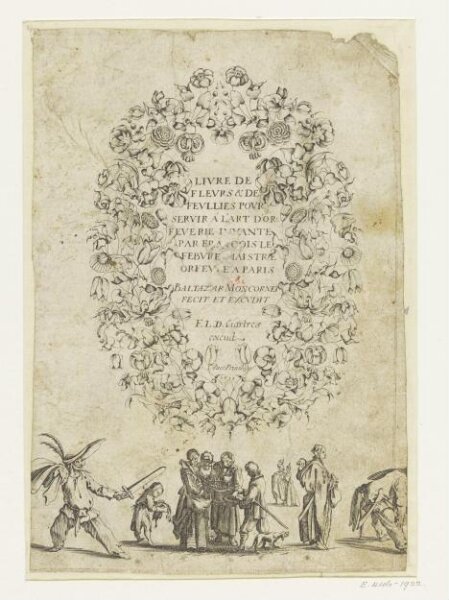 LIVRE DE
FLEVRS & DE
FEVLLIES POVR
SERVIR A LART DOR
FEVERIE INVANTE
PAR FRANCOIS LE
FEBVRE MAISTRE
ORFEVRE A PARIS
BALTAZAR MONCORNET
FECIT ET EXCVDIT
F. L. D. Ciartres
excud.